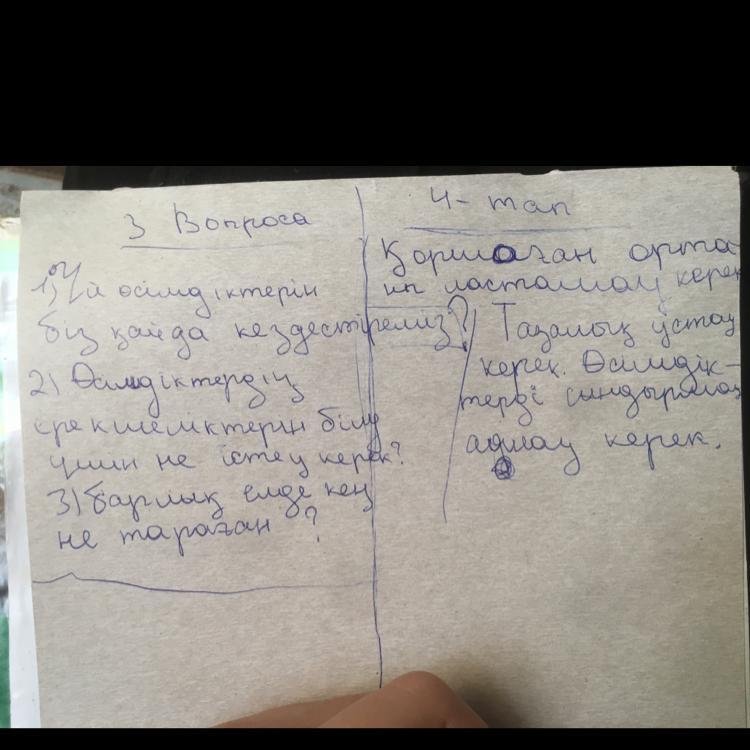 3 Вопроса
1) Үй өсімдіктерін
біз қайда кездестіреміз?
2) Өсімдіктердің
ерекшеліктерін білу
үшін не істеу керек?
3) барлық елде кең
не тараған ?
4- тап
Қоршаған орта
ны ластамау керек
Тазалық ұстау
керек. Өсімдік-
терді сындырмай
аумау керек.